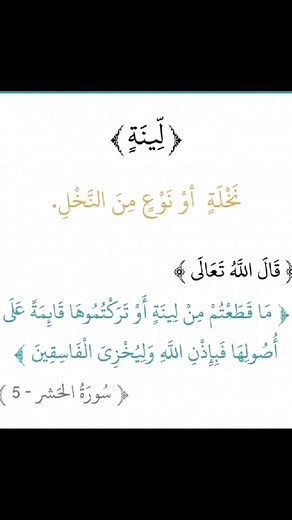 ﴿لِّينَةٍ﴾
نَخْلَةٍ أوْ نَوْعٍ مِنَ النَّخْلِ.
﴿ قَالَ اللَّهُ تَعَالَى ﴾
﴿ مَا قَطَعْتُمْ مِنْ لِينَةٍ أَوْ تَرَكْتُمُوهَا قَائِمَةً عَلَى
أُصُولِهَا فَبِإِذْنِ اللَّهِ وَلِيُخْزِيَ الْفَاسِقِينَ ﴾
﴿ سُورَةُ الحَشر - 5 ﴾